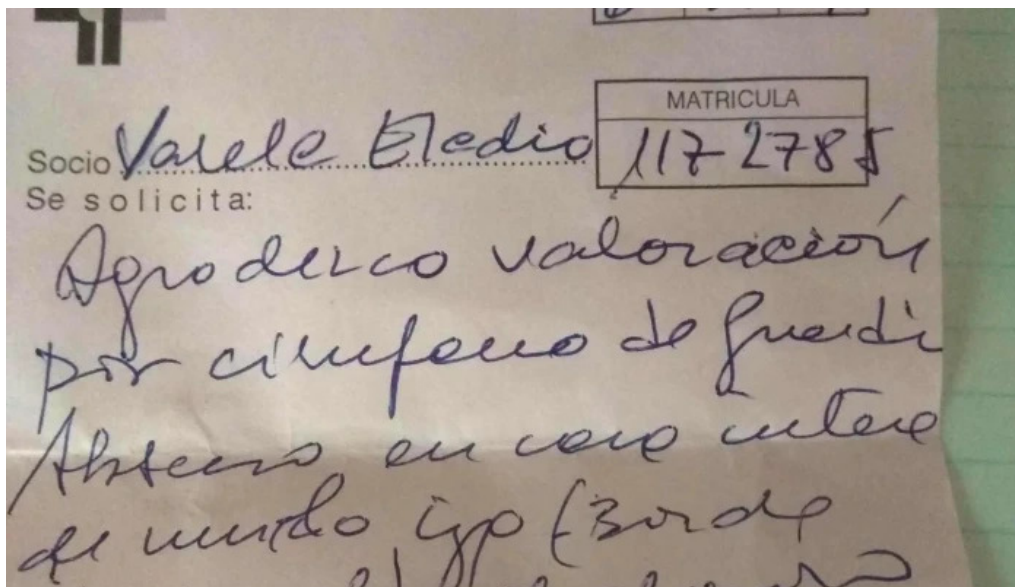 MATRICULA
Socio Varela Eladio 117-2785
Se solicita:
Agradezco valoración
por cirujano de guardia
Absceso en cara interna
de muslo izq (Borde